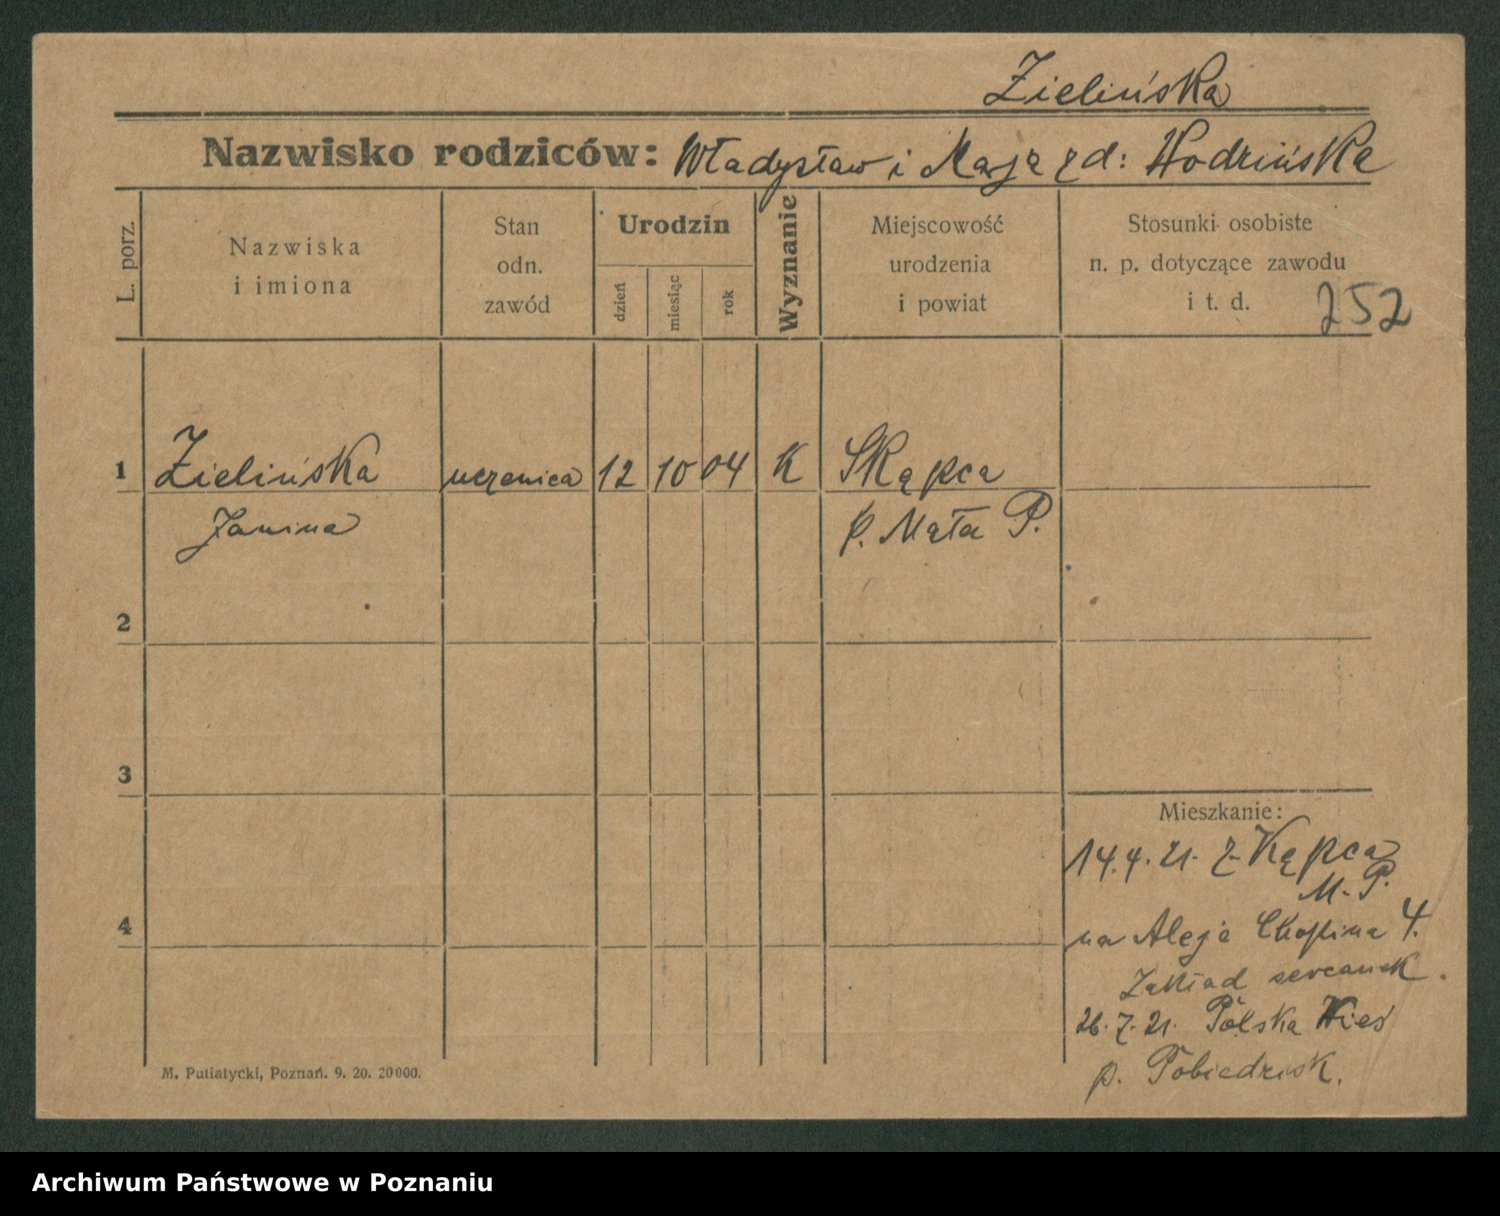 Zielińska
Nazwisko rodziców: Władysław i Maja zd: Wodzińska
L. porz.
Nazwiska
i imiona
Stan
odn.
zawód
Urodzin
dzień
miesiąc
rok
Wyznanie
Miejscowość
urodzenia
i powiat
Stosunki osobiste
n. p. dotyczące zawodu
i t. d.
252
1 Zielińska uczenica 12 10 04 K Skąpca
Janina p. Mała P.
2
3
Mieszkanie:
14.4.21. z Kąpca
M. P.
4
na Aleja Chopina 4.
Zakład sercanek.
26.7.21. Polska Wieś
p. Pobiedzisk.
M. Putiatycki, Poznań. 9. 20. 20000.
Archiwum Państwowe w Poznaniu